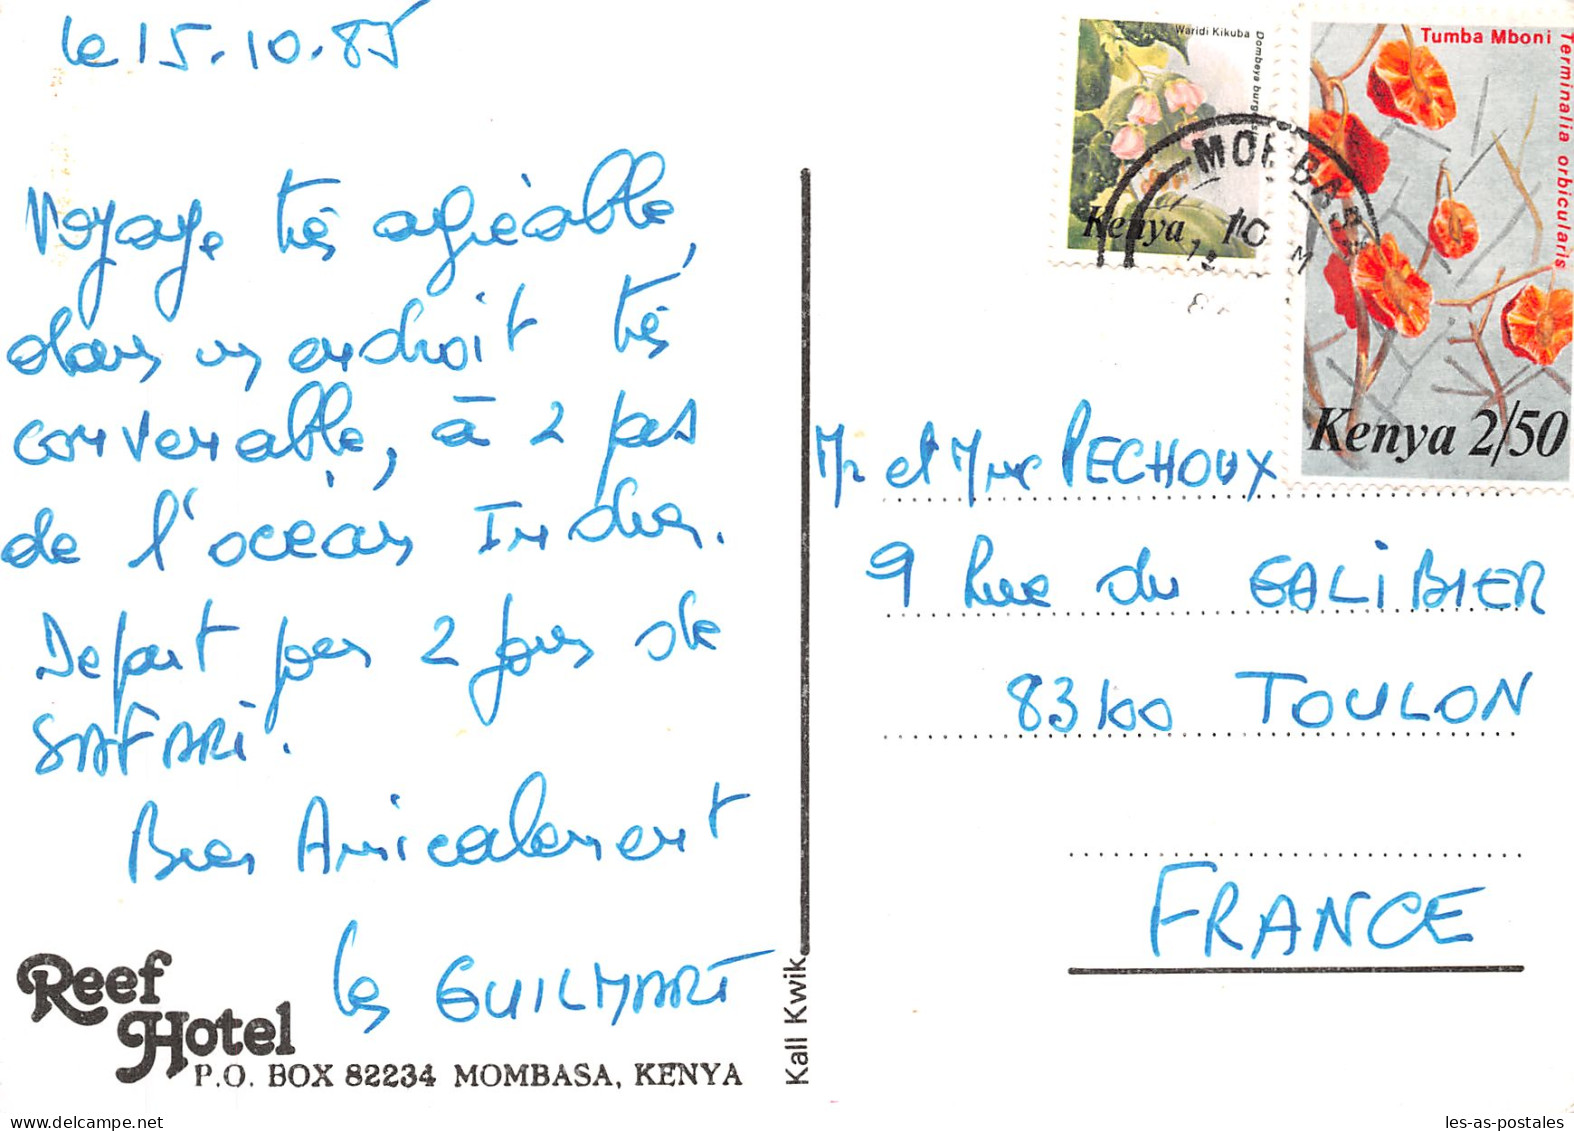 le 15.10.85
Voyage très agréable,
dans un endroit très
convenable, à 2 pas
de l'océan Indien.
Depart pour 2 jours de
SAFARi.
Bien Amicalement
les GUILMART
Reef
Hotel
P.O. BOX 82234 MOMBASA, KENYA
Kall Kwik
Waridi Kikuba
Dombeya
Kenya
Tumba Mboni
Terminalia orbicularis
Kenya 2/50
MOMBASA
Mr et Mme PECHOUX
9 Rue du GALiBIER
83100 TOULON
FRANCE
les-as-postales